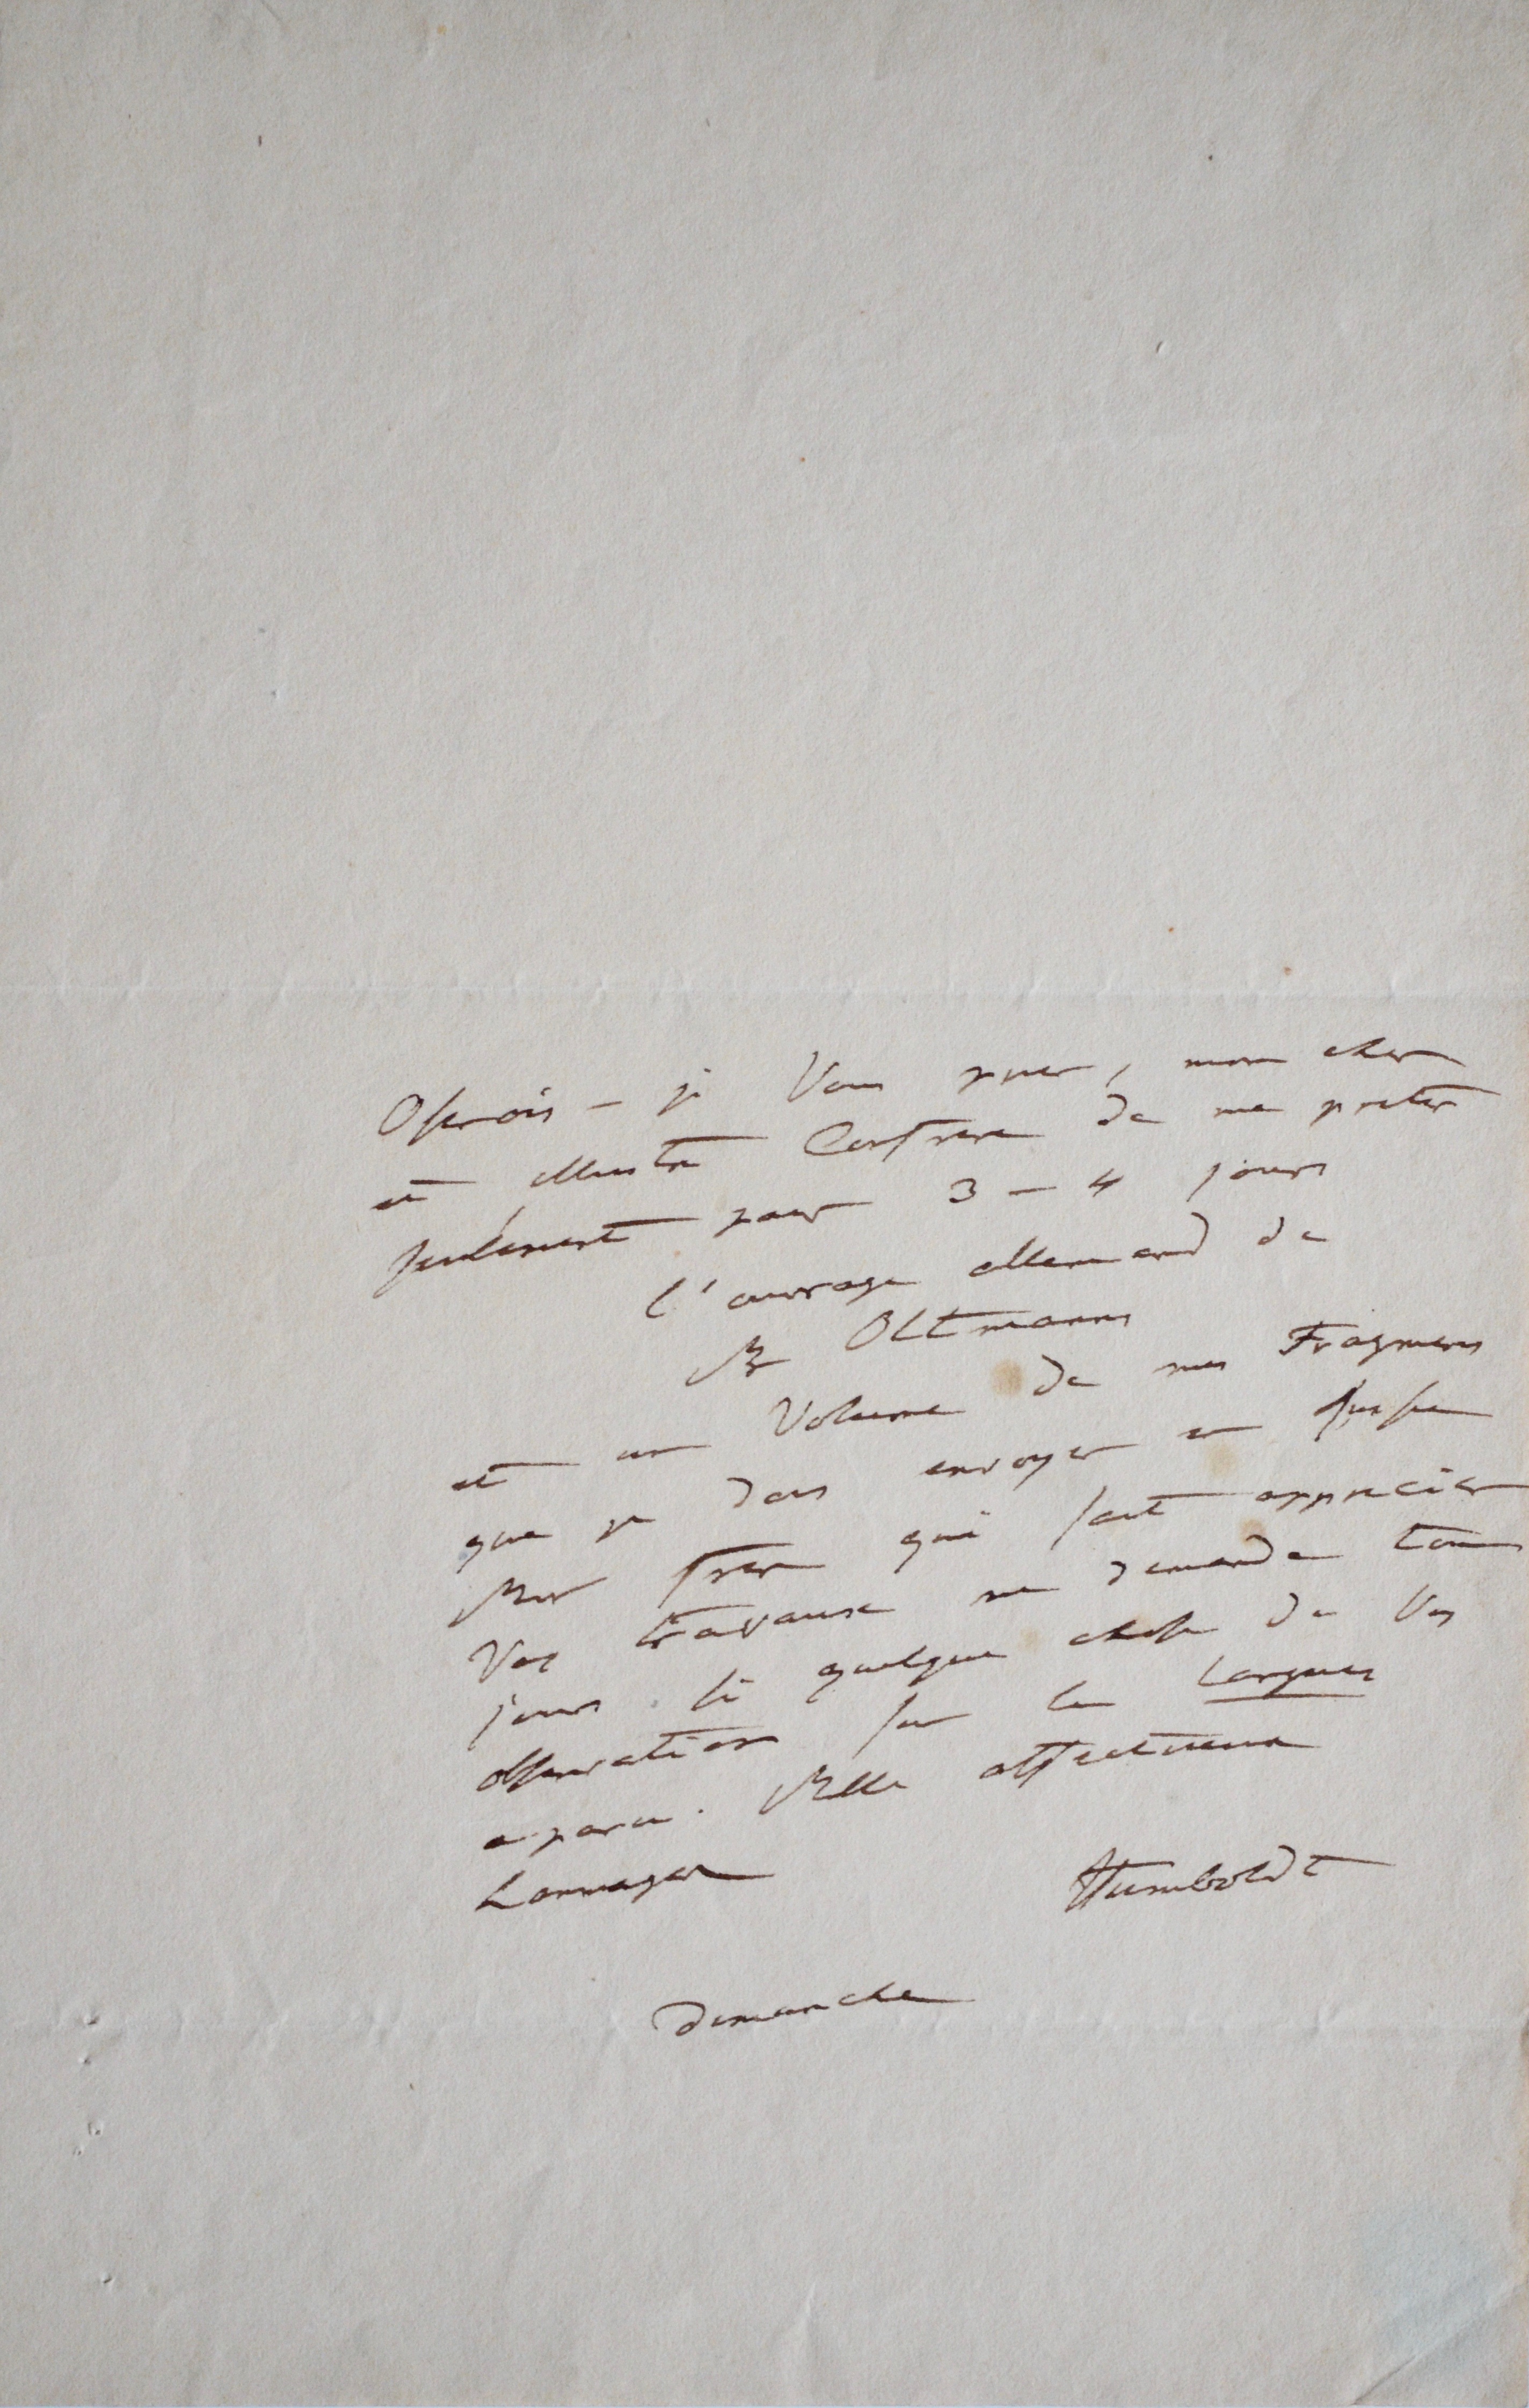 Oserois-je Vous prier, mon cher
et illustre Confrere de me preter
seulement pour 3-4 jours
l'ouvrage allemand de
Mr Oltmanns
et un Volume de mes Fragmens
que je dois envoyer en Russie
Mon frere qui sait apprecier
Vos travaux me demande tous
jours si quelque chose de Vos
observations sur les langues
a paru. Mille affectueux
hommages
Humboldt
Dimanche